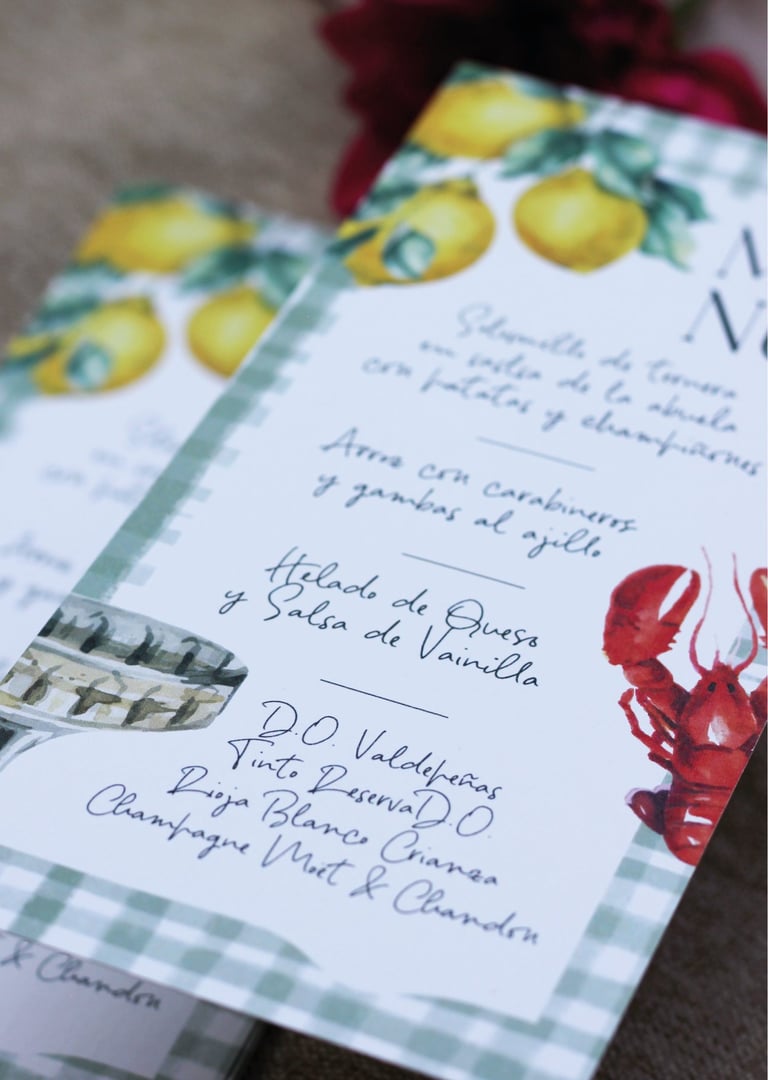 Solomillo de ternera
en salsa de la abuela
con patatas y champiñones
Arroz con carabineros
y gambas al ajillo
Helado de Queso
y Salsa de Vainilla
D.O. Valdepeñas
Tinto ReservaD.O.
Rioja Blanco Crianza
Champagne Moët & Chandon
& Chandon